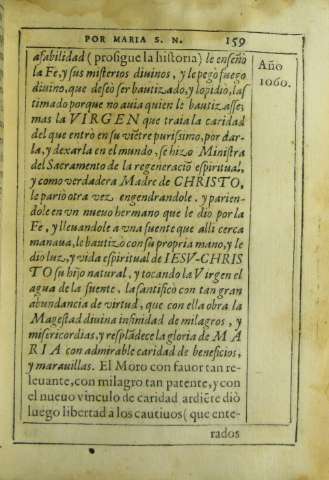 POR MARIA S. N. 159
afabilidad (prosigue la historia) le enseñò
la Fe, y sus misterios divinos, y le pegò fuego
divino, que deseò ser bautizado, y lo pidiò, las
timado porque no auia quien le bautizasse,
mas la VIRGEN que traia la caridad
del que entrò en su viẽtre purissimo, por dar-
la, y dexarla en el mundo, se hizo Ministra
del Sacramento de la regeneraciõ espiritual,
y como verdadera Madre de CHRISTO,
le pariò otra vez engendrandole, y parien-
dole en vn nueuo hermano que le diò por la
Fe, y lleuandole a vna fuente que alli cerca
manaua, le bautizò con su propria mano, y le
diò luz, y vida espiritual de IESV-CHRIS
TO su hijo natural, y tocando la Virgen el
agua de la fuente, la santificò con tan gran
abundancia de virtud, que con ella obra la
Magestad divina infinidad de milagros, y
misericordias, y resplãdece la gloria de MA
RIA con admirable caridad de beneficios,
y marauillas. El Moro con fauor tan re-
leuante, con milagro tan patente, y con
el nueuo vinculo de caridad ardiẽte diò
luego libertad a los cautiuos (que ente-
rados
Año
1060.